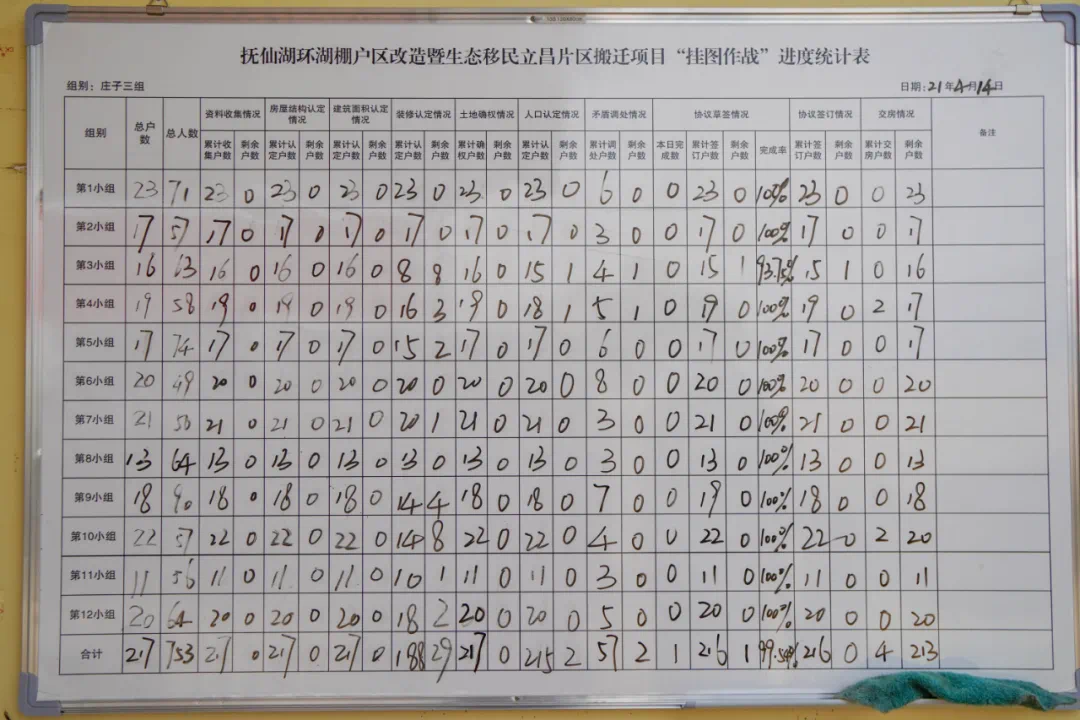 抚仙湖环湖棚户区改造暨生态移民立昌片区搬迁项目“挂图作战”进度统计表
组别：庄子三组 日期：21年4月14日
组别 总户数 总人数 资料收集情况 房屋结构认定情况 建筑面积认定情况 装修认定情况 土地确权情况 人口认定情况 矛盾调处情况 协议草签情况 协议签订情况 交房情况 备注
累计收集户数 剩余户数 累计认定户数 剩余户数 累计认定户数 剩余户数 累计认定户数 剩余户数 累计确权户数 剩余户数 累计认定户数 剩余户数 累计调处户数 剩余户数 本日完成数 累计签订户数 剩余户数 完成率 累计签订户数 剩余户数 累计交房户数 剩余户数
第1小组 23 71 23 0 23 0 23 0 23 0 23 0 23 0 6 0 0 23 0 100% 23 0 0 23
第2小组 17 57 17 0 17 0 17 0 17 0 17 0 17 0 3 0 0 17 0 100% 17 0 0 17
第3小组 16 63 16 0 16 0 16 0 8 8 16 0 15 1 4 1 0 15 1 93.75% 15 1 0 16
第4小组 19 58 19 0 19 0 19 0 16 3 19 0 18 1 5 1 0 19 0 100% 19 0 2 17
第5小组 17 74 17 0 17 0 17 0 15 2 17 0 17 0 6 0 0 17 0 100% 17 0 0 17
第6小组 20 49 20 0 20 0 20 0 20 0 20 0 20 0 8 0 0 20 0 100% 20 0 0 20
第7小组 21 50 21 0 21 0 21 0 20 1 21 0 21 0 3 0 0 21 0 100% 21 0 0 21
第8小组 13 64 13 0 13 0 13 0 13 0 13 0 13 0 3 0 0 13 0 100% 13 0 0 13
第9小组 18 90 18 0 18 0 18 0 14 4 18 0 18 0 7 0 0 19 0 100% 18 0 0 18
第10小组 22 57 22 0 22 0 22 0 14 8 22 0 22 0 4 0 0 22 0 100% 22 0 2 20
第11小组 11 56 11 0 11 0 11 0 10 1 11 0 11 0 3 0 0 11 0 100% 11 0 0 11
第12小组 20 64 20 0 20 0 20 0 18 2 20 0 20 0 5 0 0 20 0 100% 20 0 0 20
合计 217 753 217 0 217 0 217 0 188 29 217 0 215 2 57 2 1 216 1 99.54% 216 0 4 213